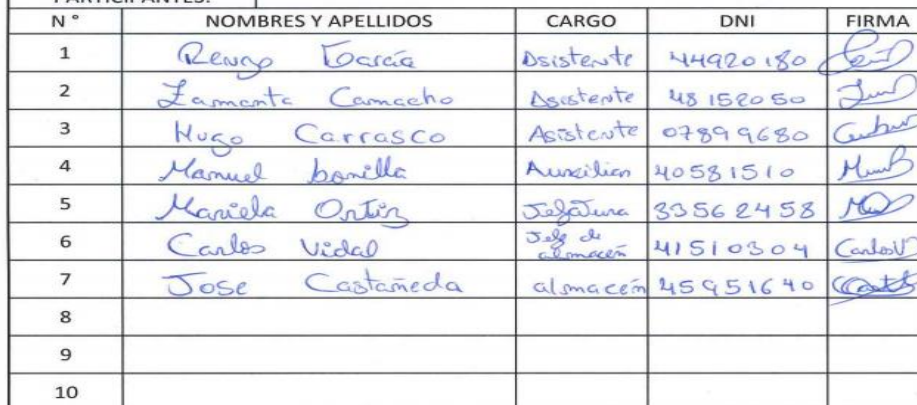 PARTICIPANTES:
N° NOMBRES Y APELLIDOS CARGO DNI FIRMA
1 Renzo García Asistente 44920180
2 Zamanta Camacho Asistente 48152050
3 Hugo Carrasco Asistente 07899680
4 Manuel bonilla Auxiliar 40581510
5 Mariela Ortiz Jefatura 33562458
6 Carlos Vidal Jefe de almacén 41510304 CarlosV
7 Jose Castañeda almacén 45951640
8
9
10